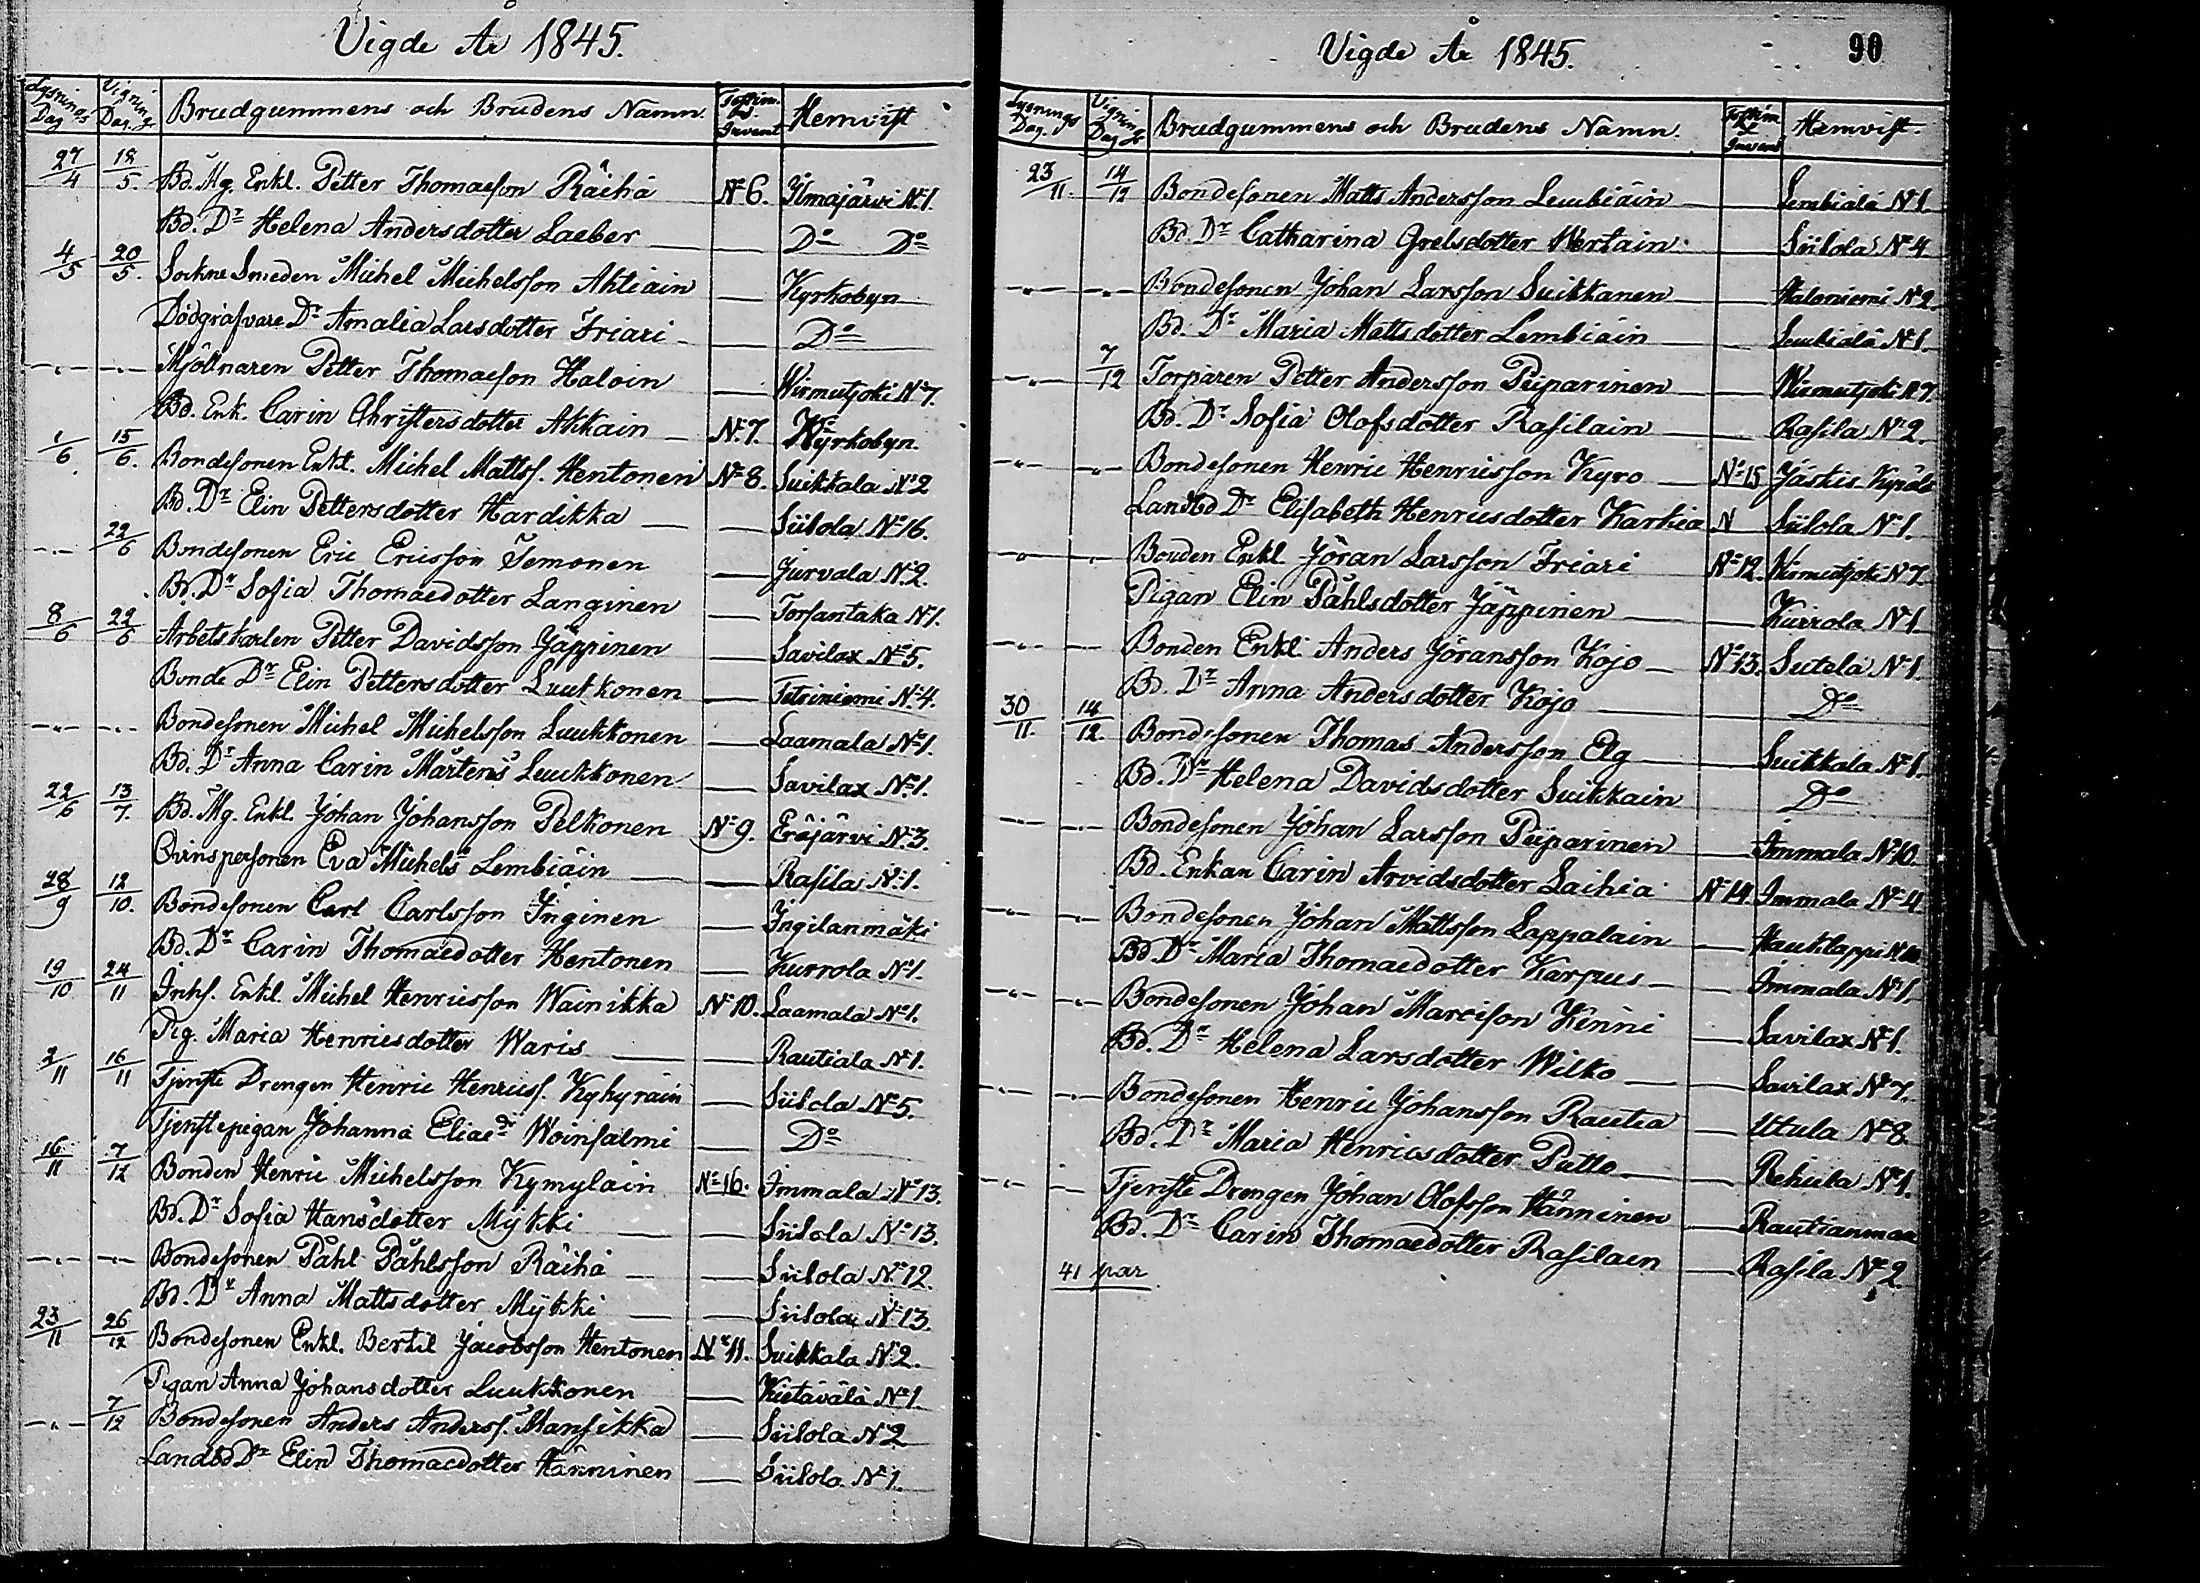 Vigde År 1845.
Lysnings Dag Vignings Dag. Brudgummens och Brudens Namn. Invent Hemvist
27/4 18/5. Bd. Mg. Enkl. Petter Thomaeson Räihä No 6. Ilmajärvi No 1.
Bd. Dr Helena Andersdotter Laeber Do Do
4/5 20/5. Sockne Smeden Michel Michelsson Ahtiain Kyrkobyn
Dödgräfvare Dr Amalia Larsdotter Friari Do
-"- -"- Mjölnaren Petter Thomaeson Haloin Wirmutjoki No 7.
Bd. Enk. Carin Christersdotter Akkain No 7. Kyrkobyn.
1/6. 15/6. Bondesonen Enkl. Michel Mattss. Hentonen No 8. Suikkala No 2
Bd. Dr Elin Pettersdotter Hardikka Siisola No 16.
-"- 22/6 Bondesonen Eric Ericsson Temonen Jurvala No 2.
Bd. Dr Sofia Thomaedotter Langinen Torsantaka No 1.
8/6 22/6 Arbetskarlen Petter Davidsson Jäppinen Savilax No 5.
Bonde Dr Elin Pettersdotter Luukkonen Tetriniemi No 4.
-"- -"- Bondesonen Michel Michelsson Luukkonen Laamala No 1.
Bd. Dr Anna Carin Mårtens Luukkonen Savilax No 1.
22/6 13/7. Bd. Mg. Enkl. Johan Johansson Pelkonen No 9. Eräjärvi No 3.
Qvinspersonen Eva Michels Lembiäin Rasila No 1.
28/9 12/10. Bondesonen Carl Carlsson Inginen Ingilanmäki
Bd. Dr Carin Thomaedotter Hentonen Kurrola No 1.
19/10 24/11 Inhs. Enkl. Michel Henricsson Wainikka No 10. Laamala No 1.
Pig. Maria Henricsdotter Waris Rautiala No 1.
2/11 16/11 Tjenste Drengen Henric Henricss. Kyhyräin Siisola No 5.
Tjenstepigan Johanna Eliae dr Woinsalmi Do
16/11 7/12 Bonden Henric Michelsson Kymyläin No 16. Immala No 13.
Bd. Dr Sofia Hansdotter Mykki Siisola No 13.
-"- -"- Bondesonen Påhl Påhlsson Räihä Siisola No 12.
Bd. Dr Anna Mattsdotter Mykki Siisola No 13.
23/11 26/12 Bondesonen Enkl. Bertil Jacobsson Hentonen No 11. Suikkala No 2.
Pigan Anna Johansdotter Luukkonen Kietävälä No 1
-"- 7/12 Bondesonen Anders Anderss. Mansikka Siisola No 2
Landbd Dr Elin Thomaedotter Hänninen Siisola. No 1.
Vigde År 1845. 90
Lysnings Dag. Vignings Dag Brudgummens och Brudens Namn. Hemvist.
23/11. 14/12 Bondesonen Matts Andersson Lembiäin Lembiälä No 1.
Bd. Dr Catharina Grelsdotter Wertain Siisola No 4.
-"- -"- Bondesonen Johan Larsson Suikkanen Haloniemi No 2.
Bd. Dr Maria Mattsdotter Lembiäin Lembiälä No 1.
-"- 7/12 Torparen Petter Andersson Piiparinen Wirmutjoki No 7.
Bd. Dr Sofia Olofsdotter Rasilain Rasila No 2.
-"- -"- Bondesonen Henric Henricsson Kyro No 15 Jäskis
Landbd Dr Elisabeth Henricsdotter Karkia N Siilola No 1.
-"- -"- Bonden Enkl. Jöran Larsson Friari No 12. Wirmutjoki No 7
Pigan Elin Påhlsdotter Jäppinen Kurrola No 1
-"- -"- Bonden Enkl. Anders Jöransson Kojo No 13. Sutela No 1.
Bd. Dr Anna Andersdotter Kojo Do
30/11. 14/12. Bondesonen Thomas Andersson Elg Suikkala No 1.
Bd. Dr Helena Davidsdotter Suikkain Do
-"- -"- Bondesonen Johan Larsson Piiparinen Immala No 10
Bd. Enkan Carin Arvidsdotter Laihia No 14 Immala No 4.
-"- -"- Bondesonen Johan Mattsson Lappalain
Bd Dr Maria Thomaedotter Karpus Immala No 1.
-"- -"- Bondesonen Johan Marcison Kinni Savilax No 1.
Bd. Dr Helena Larsdotter Wilko Savilax No 7.
-"- -"- Bondesonen Henric Johansson Rautia Utula No 8.
Bd. Dr Maria Henricsdotter Putto Rehula No 1.
-"- -"- Tjenste Drengen Johan Olofsson Hänninen Rautianmaa
Bd. Dr Carin Thomaedotter Rasilaen Rasila No 2
41 par